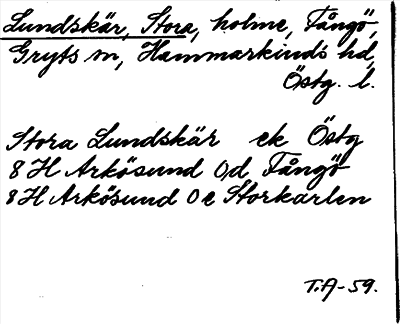 Lundskär, Stora, holme, Fångö,
Gryts sn, Hammarkinds hd,
Östg. l.
Stora Lundskär ek Östg
8 H Arkösund 0,d Fångö
8 H Arkösund 0 e Storkarlen
T.A-59.